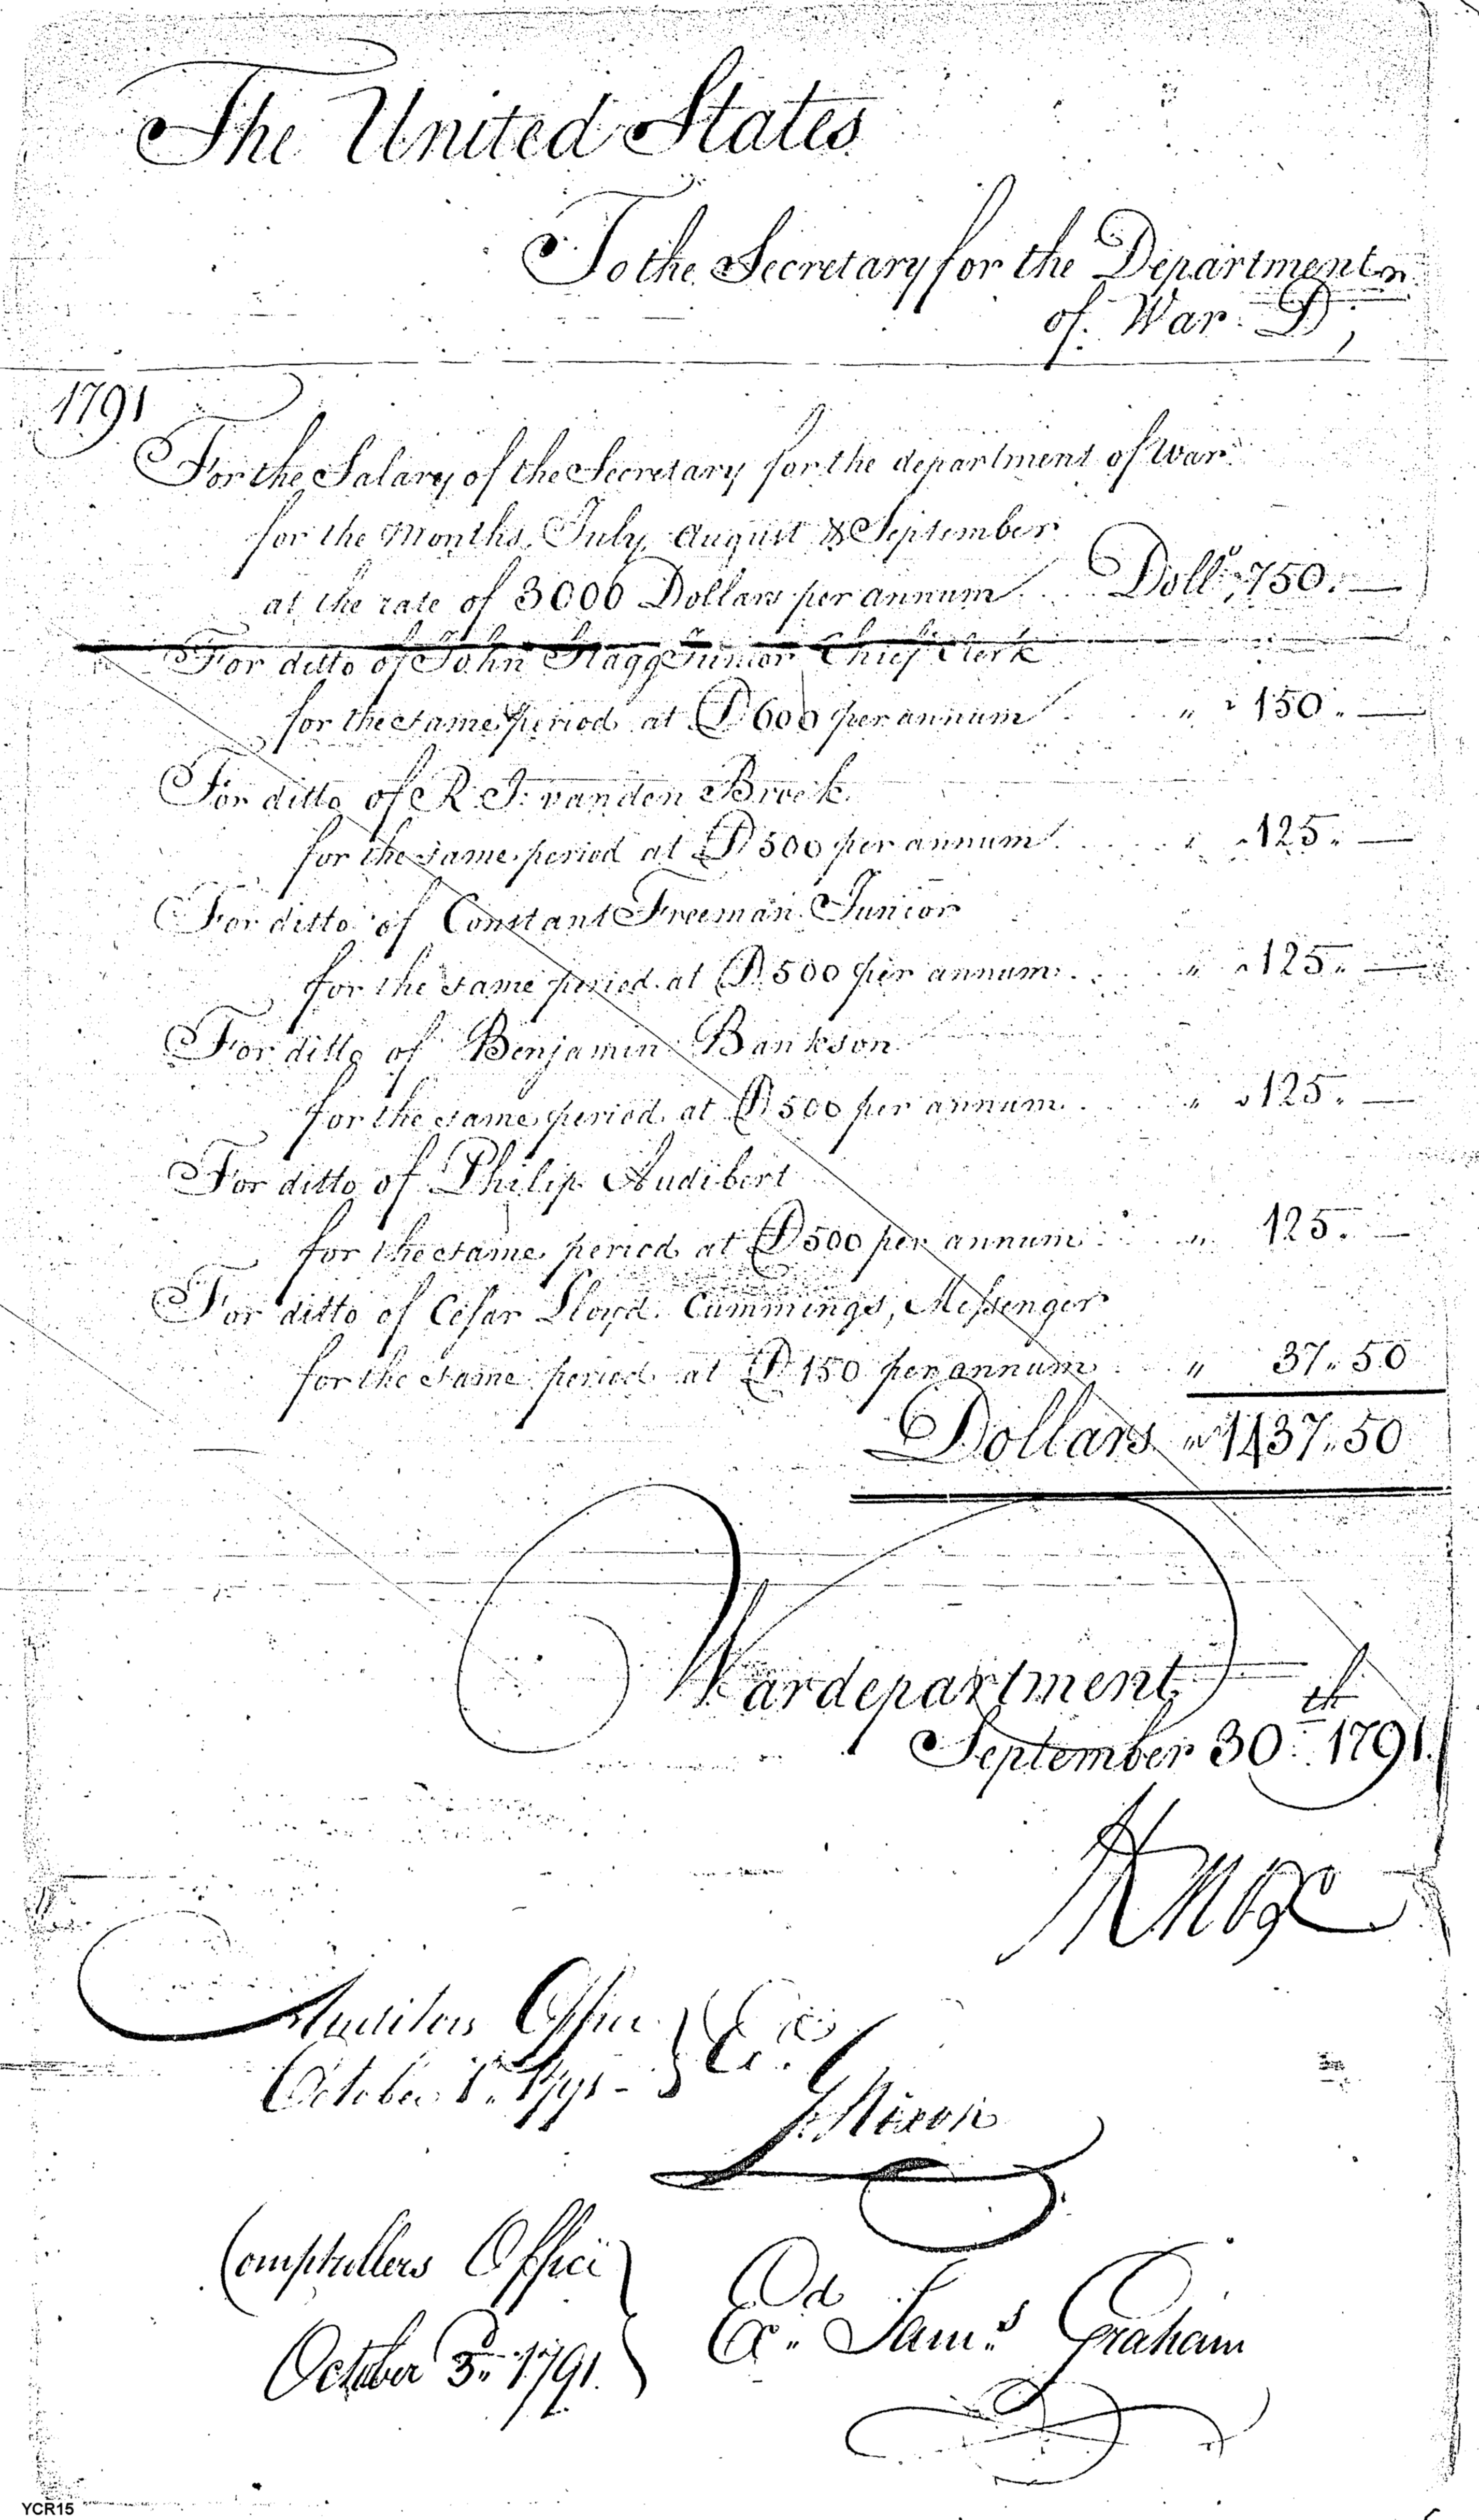 The United States
To the Secretary for the Department
of War Dr,
1791
For the Salary of the Secretary for the department of War
for the Months, July, August & September
at the rate of 3000 Dollars per annum . . Dollrs 750. —
For ditto of John Stagg Junior Chief Clerk
for the same period at D 600 per annum . . " " 150. —
For ditto of R. J. vanden Broek
for the same period at D 500 per annum . . . . " 125. —
For ditto of Constant Freeman Junior
for the same period at D 500 per annum . . . " " 125. —
For ditto of Benjamin Bankson
for the same period at D 500 per annum . . . " " 125. —
For ditto of Philip Audibert
for the same period at D 500 per annum . . . " 125. —
For ditto of Cesar Lloyd Cummings, Messenger
for the same period at D 150 per annum . . " 37.. 50
Dollars " 1437.. 50
Wardepartment
September 30th 1791.
HKnox
Auditors Office } Ex.
October 1.. 1791 -
J. Nixon
Comptrollers Office }
October 3d 1791. } Exd Saml Graham
YCR15